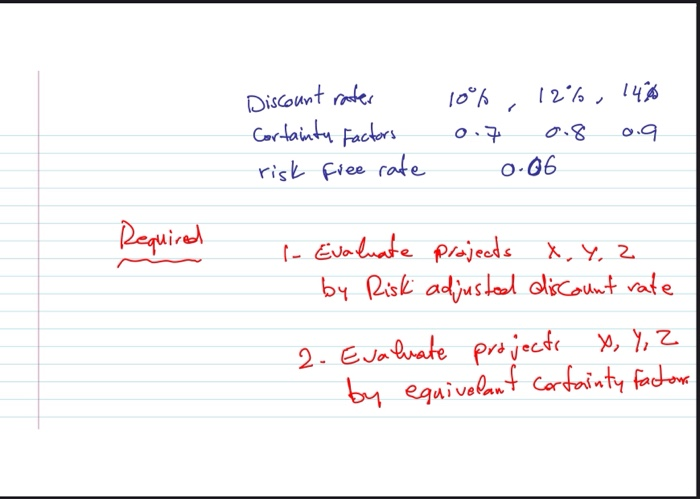 Discount rates 10%, 12%, 14%
Certainty Factors 0.7 0.8 0.9
risk free rate 0.06
Required
1- Evaluate projects X, Y, Z
by Risk adjusted discount rate
2- Evaluate projects X, Y, Z
by equivelant certainty factors